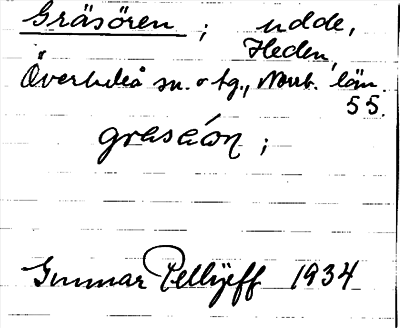 Gräsören ; udde,
Heden,
Överluleå sn. o tg., Norrb. län.
55.
gräsø̀ɔn ;
Gunnar Pellijeff 1934